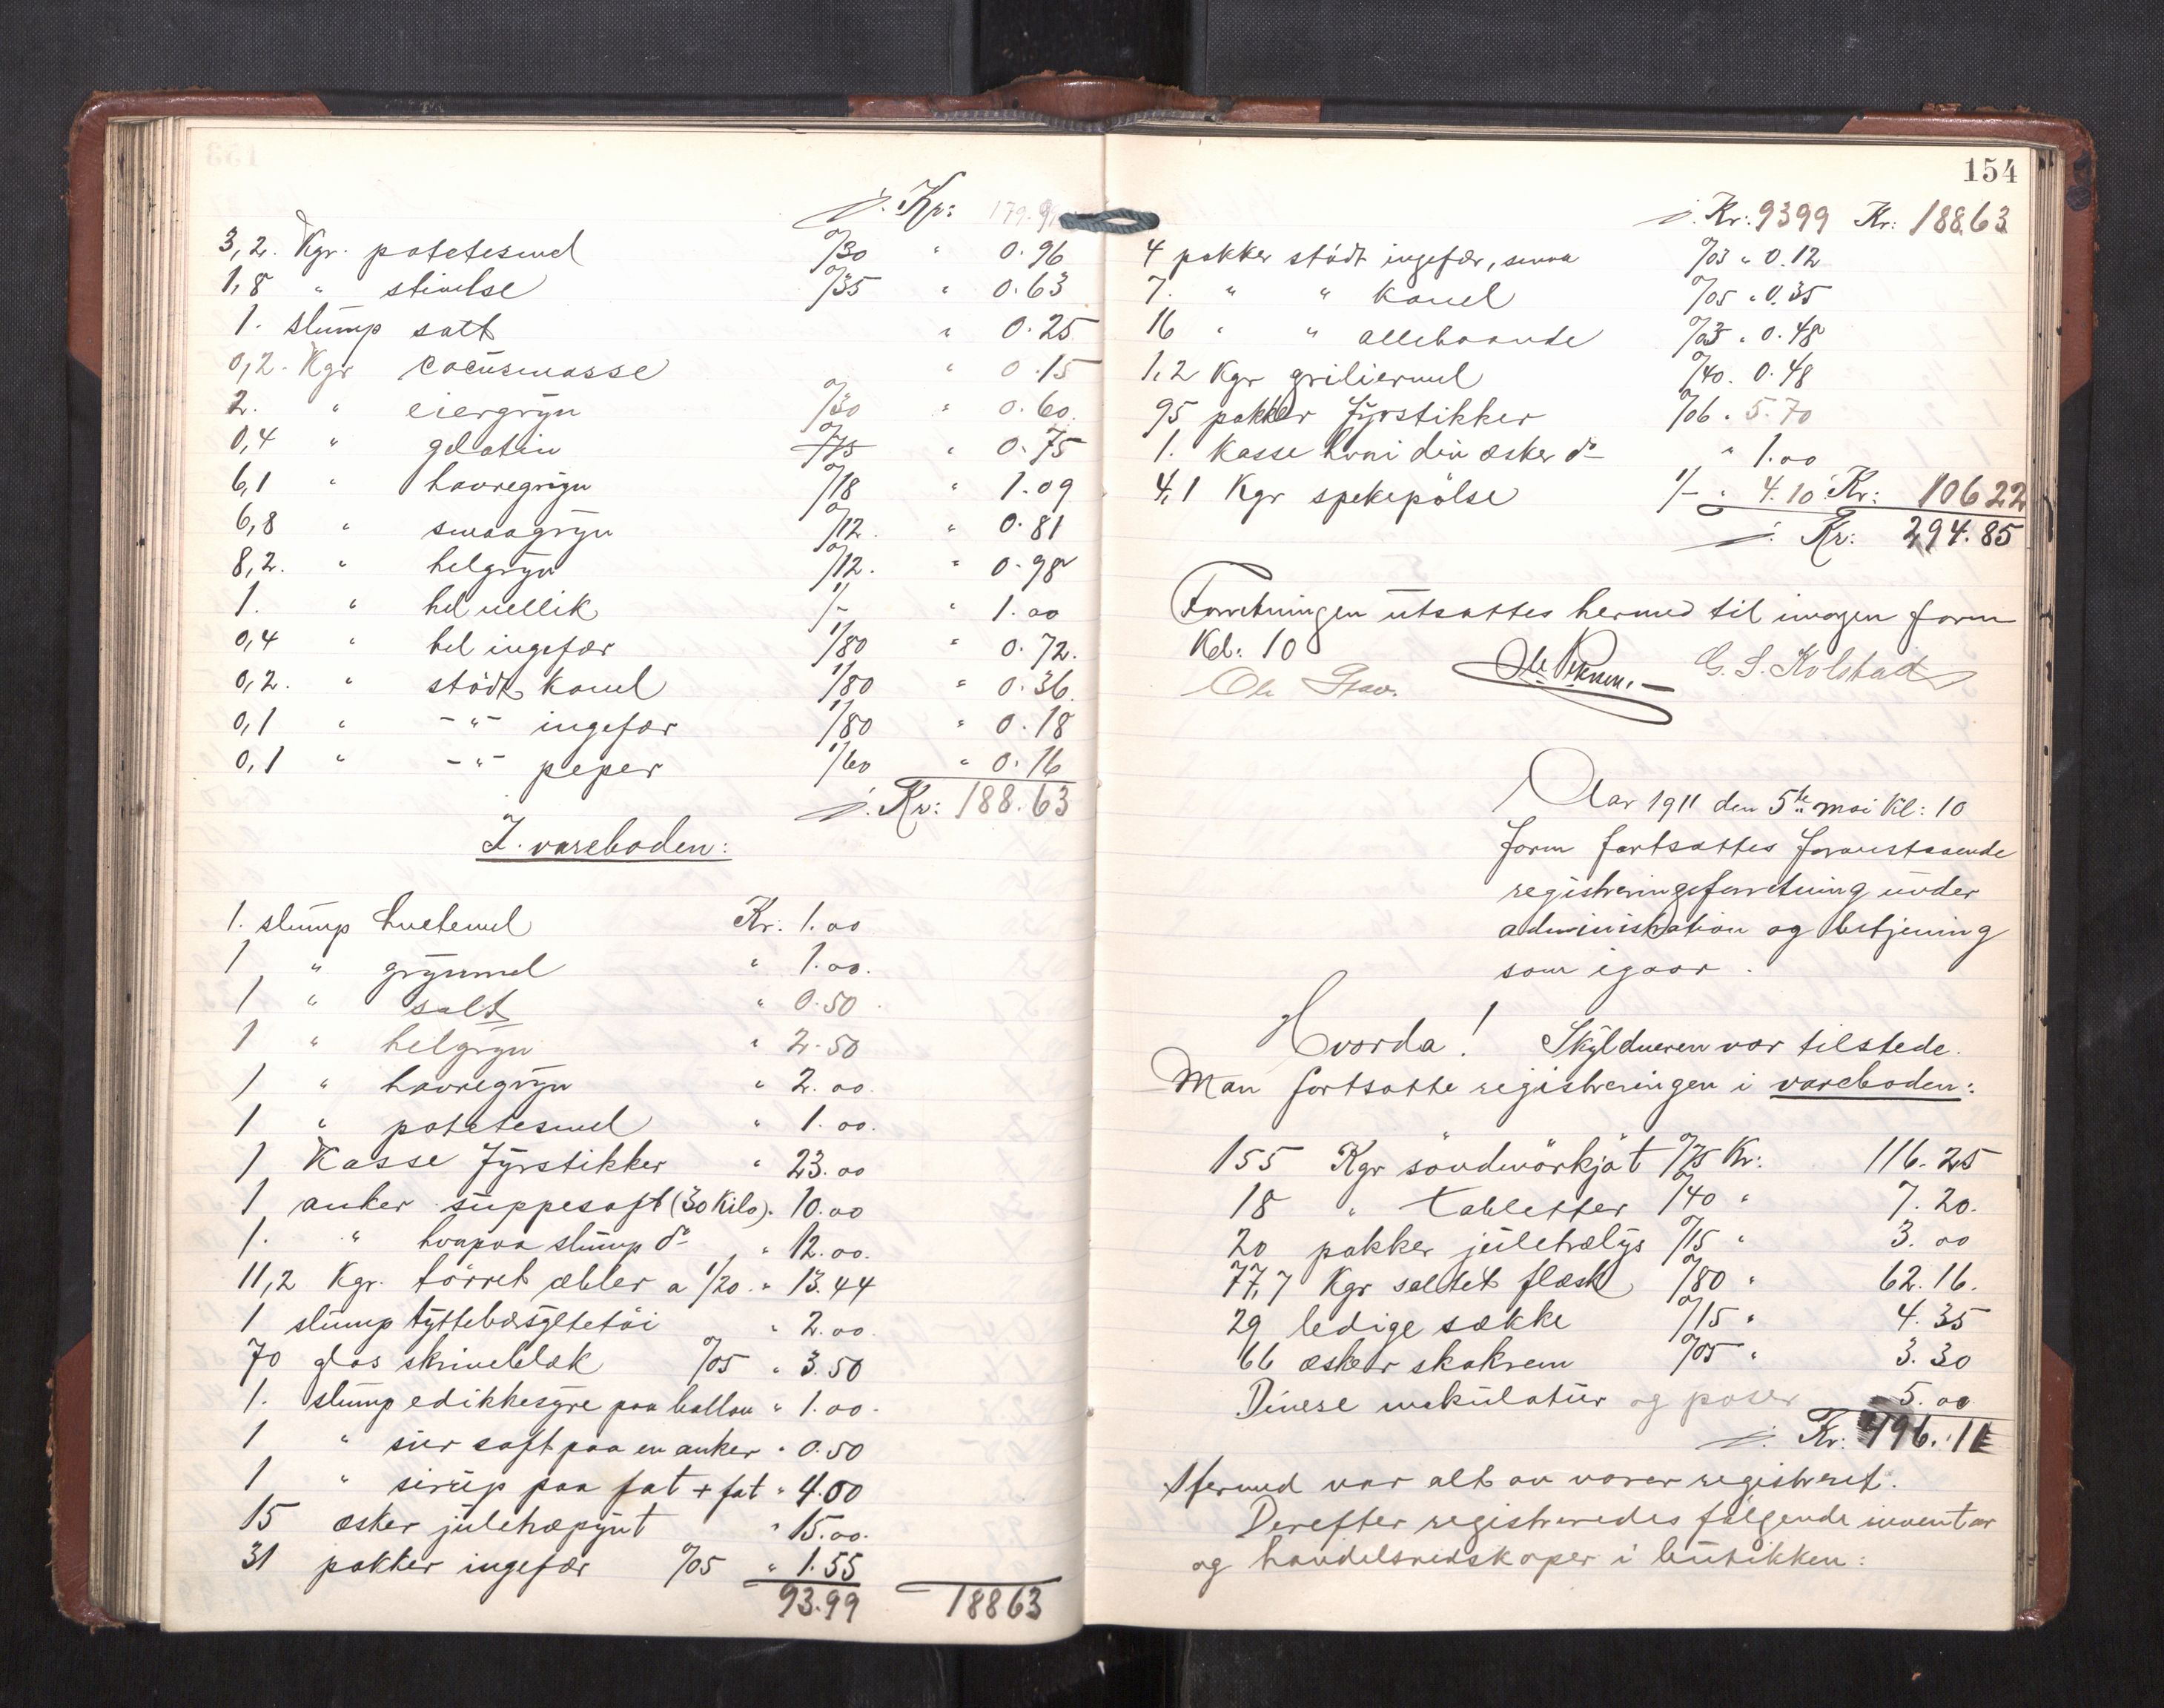 153
j. Kr: 179.99
3,2. Kgr. potetesmel 0/30 " 0.96
1,8 " stivelse 0/35 " 0.63
1. slump salt " 0.25
0,2. Kgr cocusmasse " 0.15
2. " eiergryn 0/30 " 0.60.
0,4 " gelatin 0/75 " 0.75
6,1 " havregryn 0/18 " 1.09
6,8 " smaagryn 0/12. " 0.81
8,2. " helgryn 0/12. " 0.98
1. " hel nellik 1/- " 1.00
0,4 " hel ingefær 1/80 " 0.72.
0,2. " stödt kanel 1/80 " 0.36.
0,1 " -"- ingefær 1/80 " 0.18
0,1 " -"- peper 1/60 " 0.16
j. Kr: 188.63
I. vareboden:
1. slump hvetemel Kr: 1.00
1 " grynmel " 1.00.
1 " salt " 0.50.
1 " helgryn " 2.50
1 " havregryn " 2.00.
1 " potetesmel " 1.00.
1 Kasse fyrstikker " 23.00
1 anker suppesaft (30 Kilo). 10.00
1. " hvapaa slump do " 12.00.
11,2 Kgr. törret æbler a 1/20. " 13.44
1 slump tyttebærsyltetöi " 2.00.
70 glas skriveblæk 0/05 " 3.50
1. slump edikkesyre paa ballon " 1.00.
1 " sur saft paa en anker " 0.50
1 " sirup paa fat + fat " 4.00
15 æsker juletræpynt " 15.00.
31 pakker ingefær 0/05 " 1.55
93.99 18863
154
j. Kr: 9399 Kr: 188.63
4 pakker stödt ingefær, smaa 0/03 " 0.12
7. " " Kanel 0/05 " 0.35
16 " " allehaande 0/03 " 0.48
1,2 Kgr griliermel 0/40. 0.48
95 pakker fyrstikker 0/06 " 5.70
1. Kasse hvori div æsker do " 1.00
4,1 Kgr spekepölse 1/- " 4.10 Kr: 10622
j. Kr: 294.85
Forretningen utsattes hermed til imorgen form
Kl: 10
Ole G. S. Kolstad
Aar 1911 den 5te mai Kl: 10
form fortsattes foranstaaende
registreringsforretning under
administration og betjening
som igaar.
Hvorda! Skyldneren var tilstede.
Man fortsatte registreringen i vareboden:
155 Kgr söndmörkjöt 0/75 Kr: 116.25
18 " tabletter 0/40 " 7.20.
20 pakker juletrælys 0/15 " 3.00
77,7 Kgr saltet flæsk 0/80 " 62.16.
29 ledige sække 0/15 " 4.35
66 æsker skokrem 0/05 " 3.30
Diverse makulatur og poser 5.00
j. Kr: 496.11
Hermed var alt av varer registreret.
Derefter registreredes fölgende inventar
og handelsredskaper i butikken: